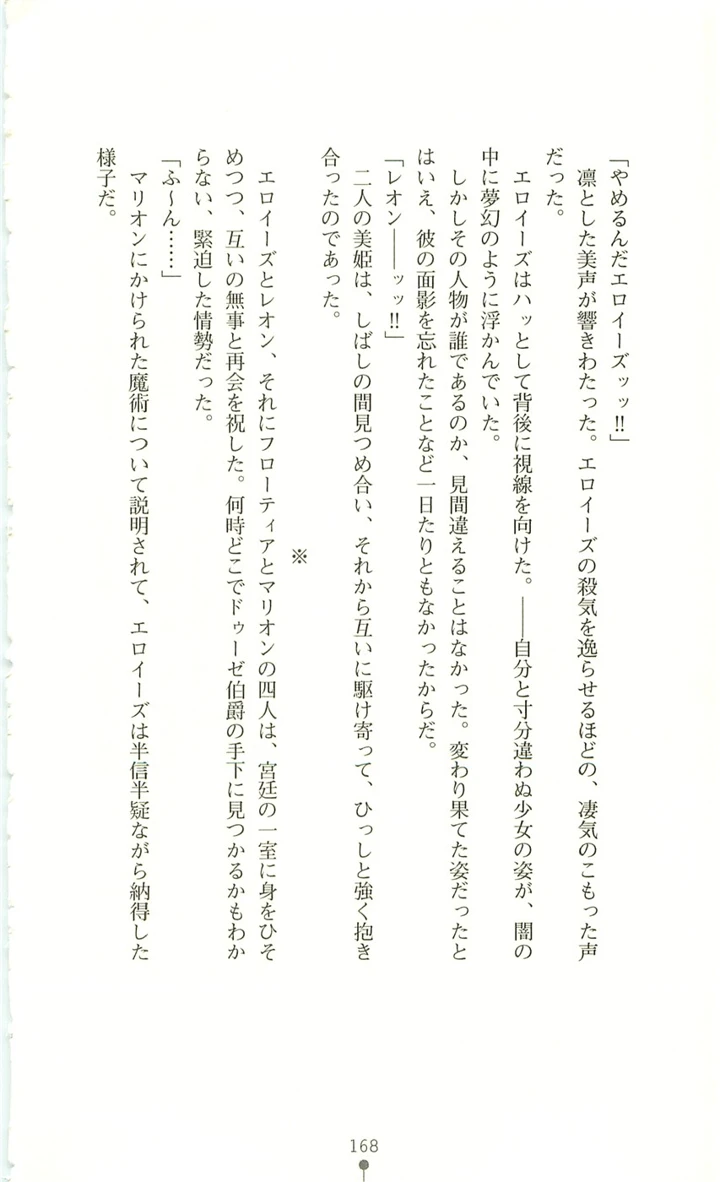 「やめるんだエロイーズッッ!!」
　凛とした美声が響きわたった。エロイーズの殺気を逸らせるほどの、凄気のこもった声
だった。
　エロイーズはハッとして背後に視線を向けた。――自分と寸分違わぬ少女の姿が、闇の
中に夢幻のように浮かんでいた。
　しかしその人物が誰であるのか、見間違えることはなかった。変わり果てた姿だったと
はいえ、彼の面影を忘れたことなど一日たりともなかったからだ。
「レオン――ッッ!!」
　二人の美姫は、しばしの間見つめ合い、それから互いに駆け寄って、ひっしと強く抱き
合ったのであった。
※
　エロイーズとレオン、それにフローティアとマリオンの四人は、宮廷の一室に身をひそ
めつつ、互いの無事と再会を祝した。何時どこでドゥーゼ伯爵の手下に見つかるかもわか
らない、緊迫した情勢だった。
「ふ〜ん……」
　マリオンにかけられた魔術について説明されて、エロイーズは半信半疑ながら納得した
様子だ。
168